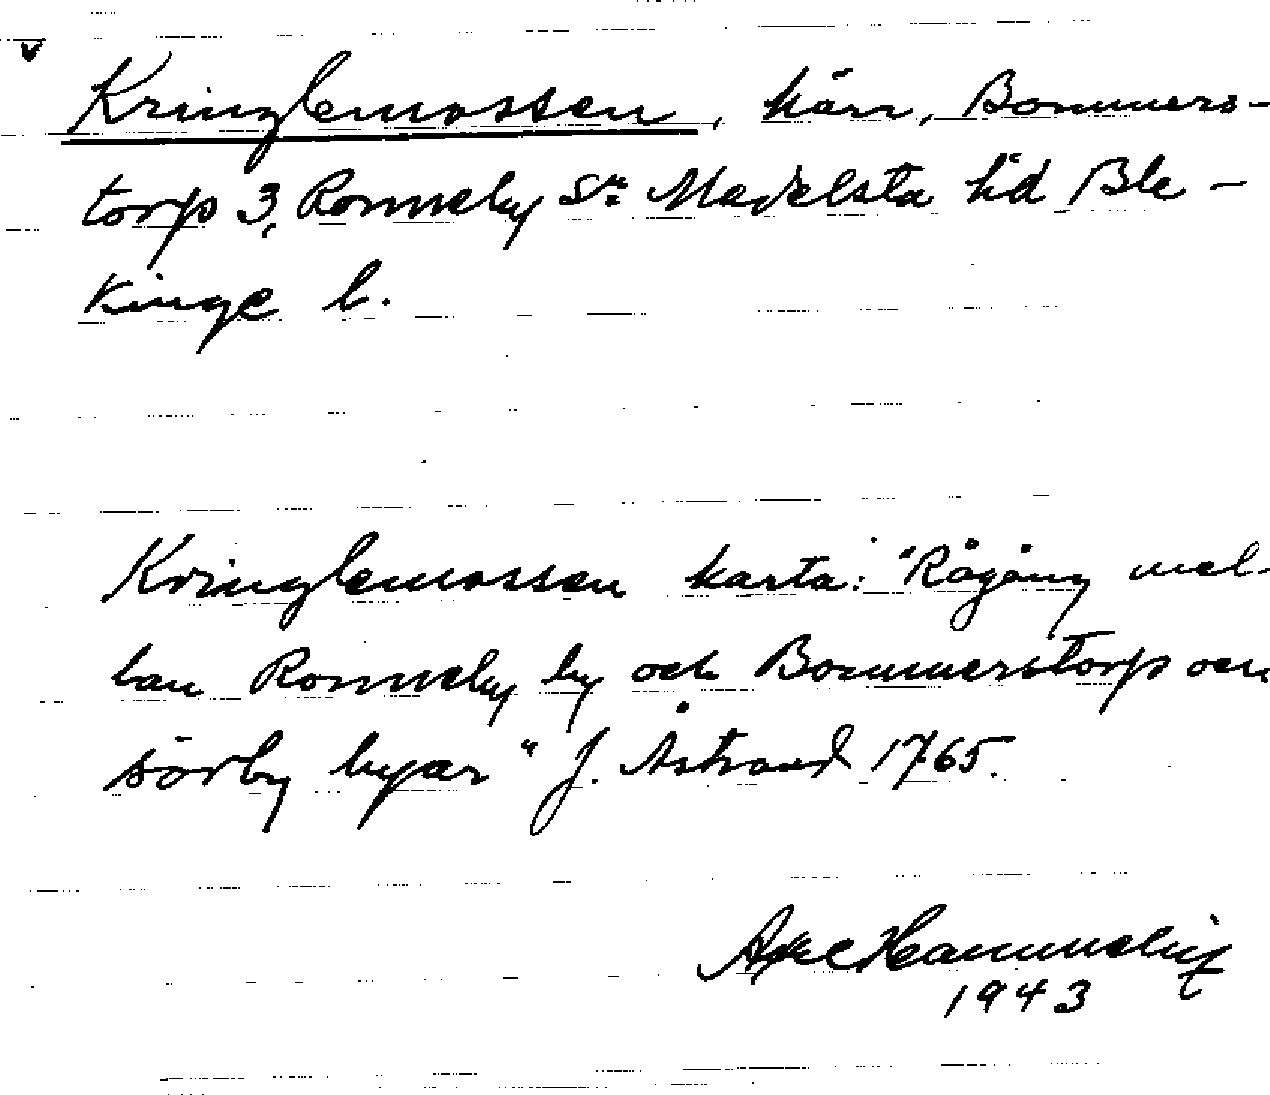 v
Kringlemossen, kärr, Bommers-
torp 3, Ronneby Sn Medelsta hd Ble-
kinge l.
Kringlemossen karta: "Rågång mel-
lan Ronneby by och Bommerstorp och
sörby byar" J. Åstrand 1765.
1943